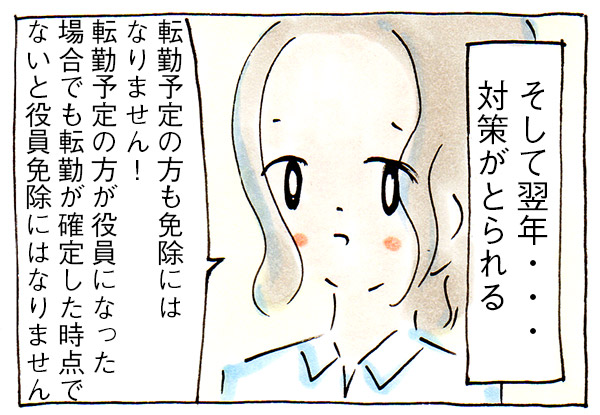 そして翌年・・・
対策がとられる
転勤予定の方も免除には
なりません!
転勤予定の方が役員になった
場合でも転勤が確定した時点で
ないと役員免除にはなりません